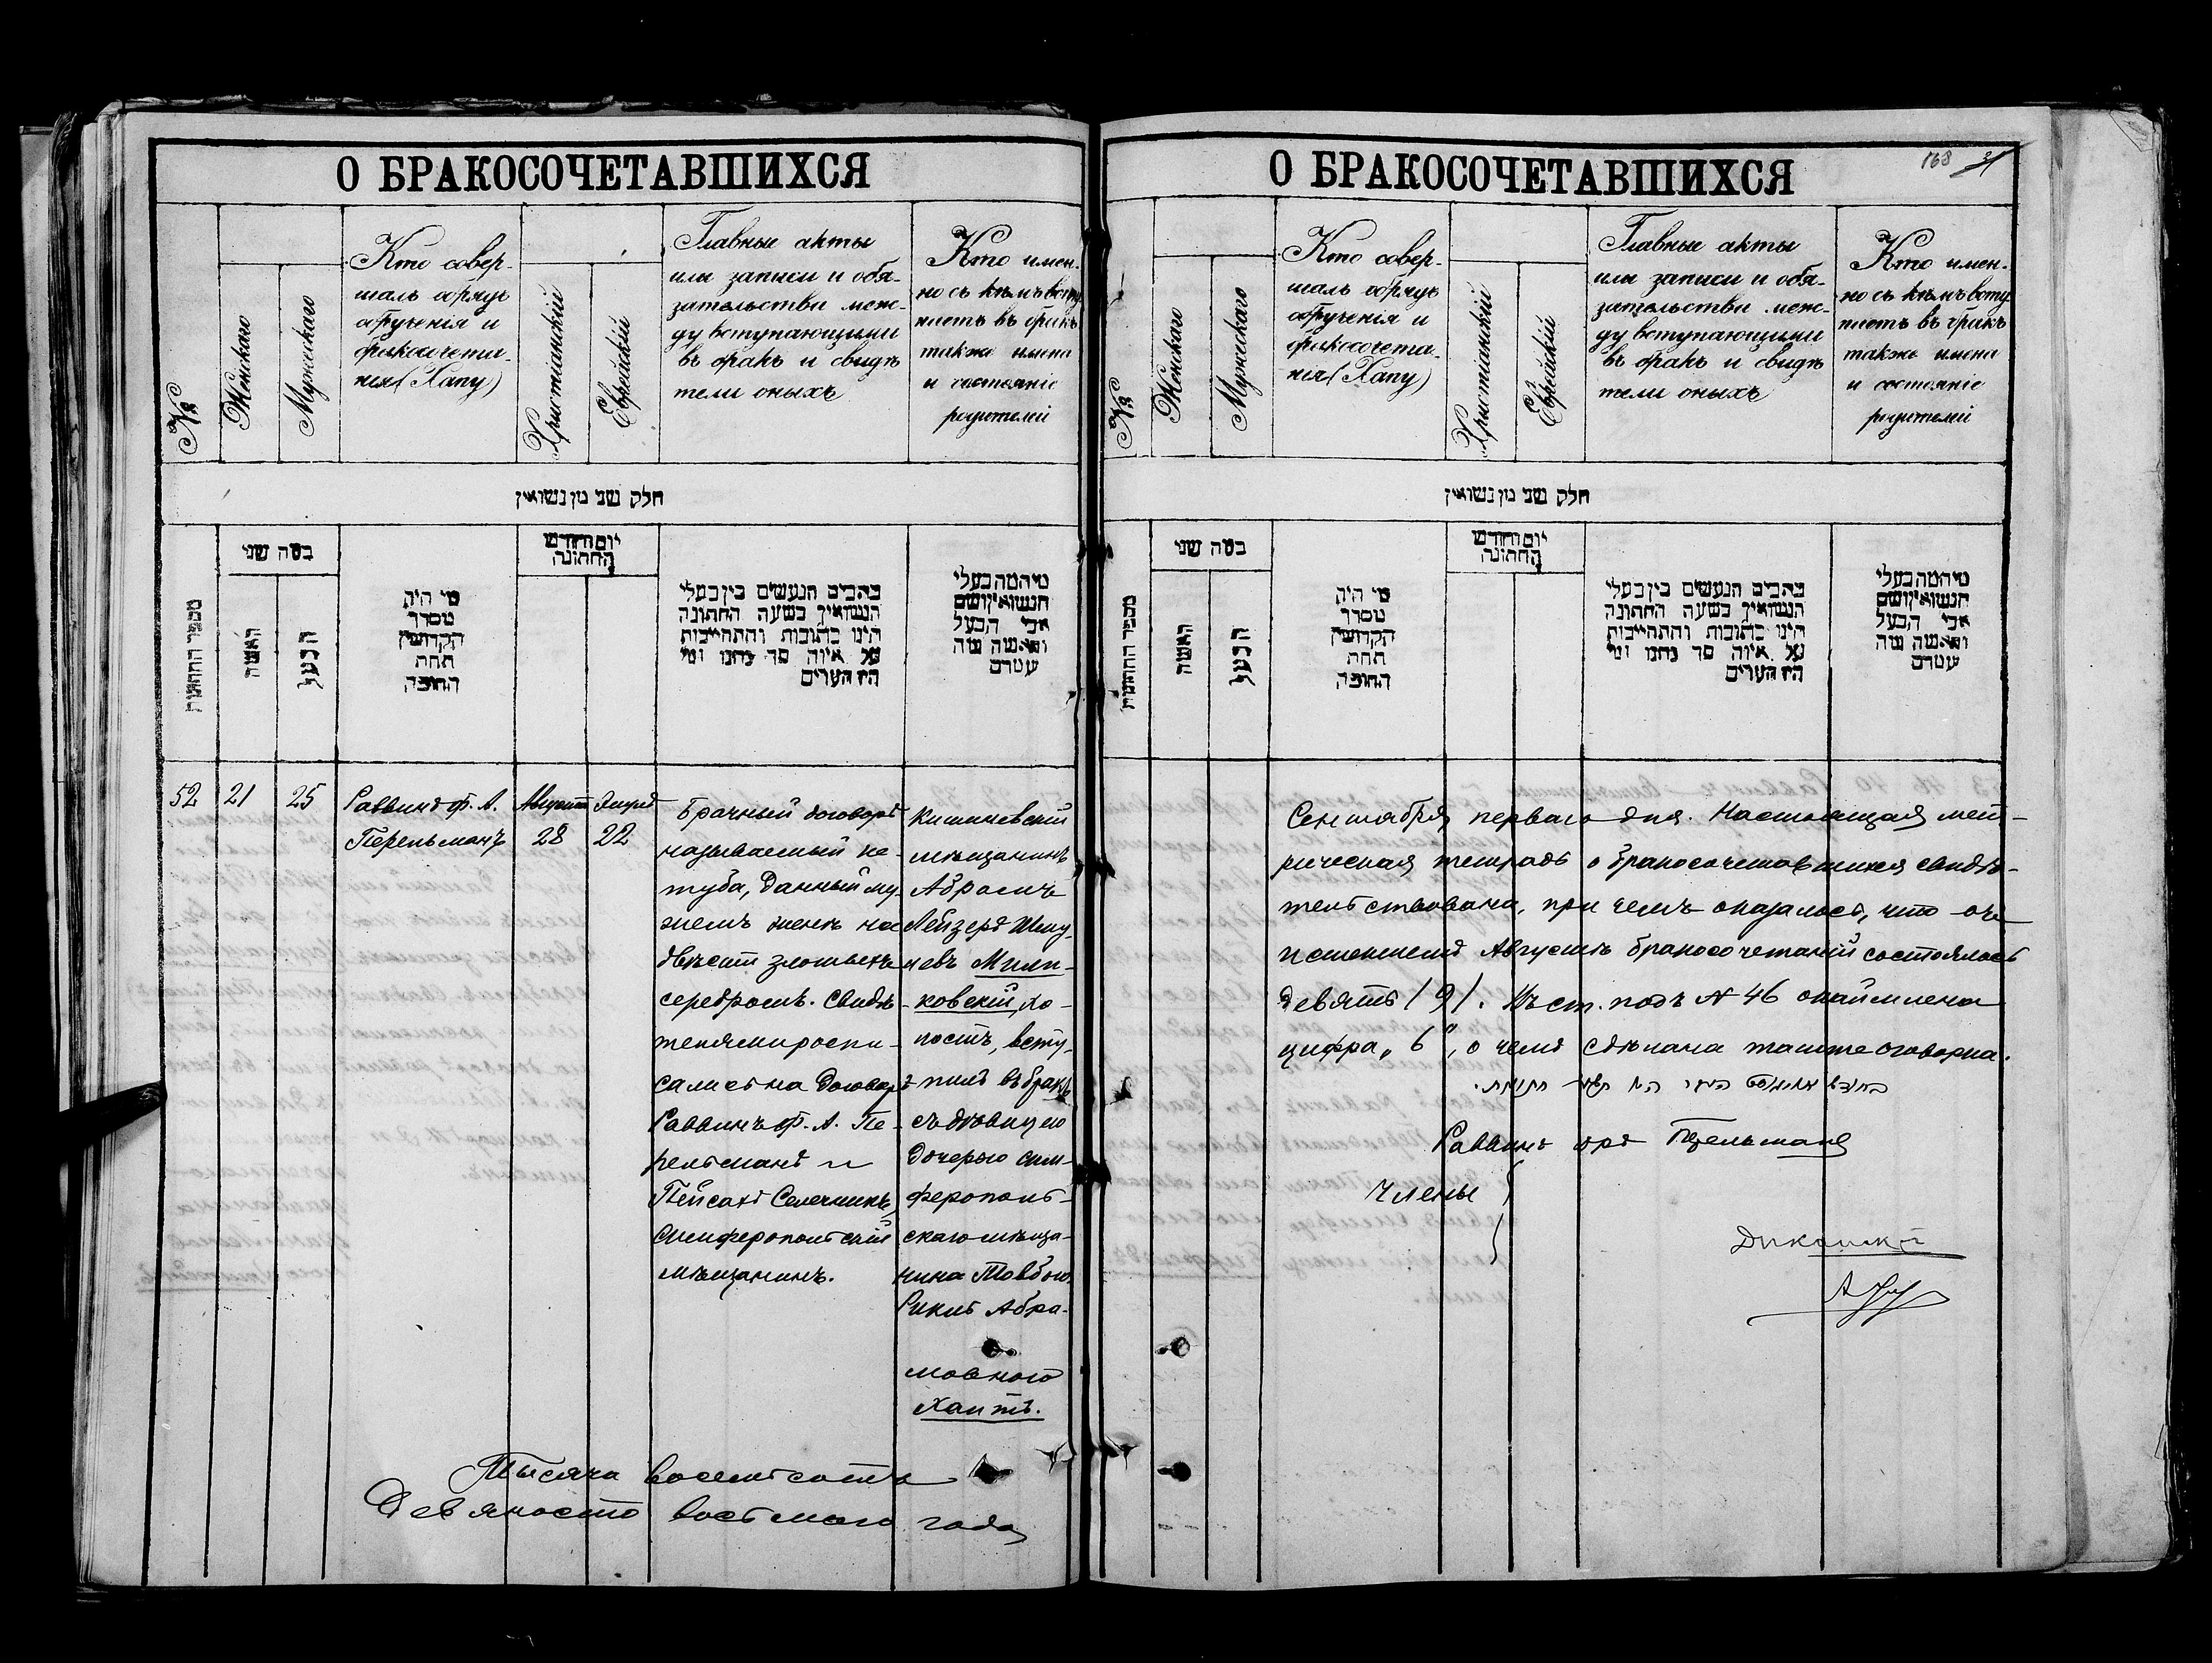 О БРАКОСОЧЕТАВШИХСЯ
№
Женскаго
Мужескаго
Кто совер-
шалъ обрядъ
обрученія и
бракосочета-
нія (Хапу)
Христіанскій
Еврейскій
Главные акты
или записи и обя-
зательства меж-
ду вступающими
въ бракъ и свидѣ
тели оныхъ
Кто имен-
но съ кѣмъ всту
паетъ въ бракъ
также имена
и состояніе
родителей
חלק שני מן נשואין
מספר החתונות
כמה שני
האשה
הבעל
מי היה
מסדר
הקדושין
תחת
החופה
יום וחודש
החתונה
כתבים הנעשים בין בעלי
הנשואין בשעה החתונה
היינו כתובות והתחייבות
על איזה סך נתנו ומי
היו העדים
מי המה בעלי
הנשואין ושם
אבי הבעל
והאשה
52
21
25
Раввинъ ф. А.
Перельманъ
Августа
28
Элулъ
22
Брачный договоръ
называемый ке-
туба, данный му-
жемъ женѣ на
двѣсти злотыхъ
серебромъ. Свидѣ-
телями роспи-
сались на договорѣ
Раввинъ ф. А. Пе-
рельманъ и
Пейсахъ Селечникъ,
Симферопольскій
мѣщанинъ.
Кишиневскій
мѣщанинъ
Абрамъ
Лейзеръ Шму-
левъ Мили-
ковскій, хо-
лостъ, всту-
пилъ въ бракъ
съ дѣвицею
дочерью сим-
ферополь-
скаго мѣща-
нина Товбою
Рикль Абра-
мовною
Хаитъ.
Тысяча восемьсотъ
девяносто восьмаго года
О БРАКОСОЧЕТАВШИХСЯ
168 31
№
Женскаго
Мужескаго
Кто совер-
шалъ обрядъ
обрученія и
бракосочета-
нія (Хапу)
Христіанскій
Еврейскій
Главные акты
или записи и обя-
зательства меж-
ду вступающими
въ бракъ и свидѣ
тели оныхъ
Кто имен-
но съ кѣмъ всту
паетъ въ бракъ
также имена
и состояніе
родителей
חלק שני מן נשואין
מספר החתונות
כמה שני
האשה
הבעל
מי היה
מסדר
הקדושין
תחת
החופה
יום וחודש
החתונה
כתבים הנעשים בין בעלי
הנשואין בשעה החתונה
היינו כתובות והתחייבות
על איזה סך נתנו ומי
היו העדים
מי המה בעלי
הנשואין ושם
אבי הבעל
והאשה
Сентября перваго дня. Настоящая мет-
рическая тетрадь о бракосочетавшихся свидѣ-
тельствована, при чемъ оказалось, что въ
истекшемъ Августѣ бракосочетаній состоялось
девять (9). Въ ст. подъ № 46
цифра „6", о чемъ сдѣлана также оговорка.
Раввинъ Перельманъ
Члены